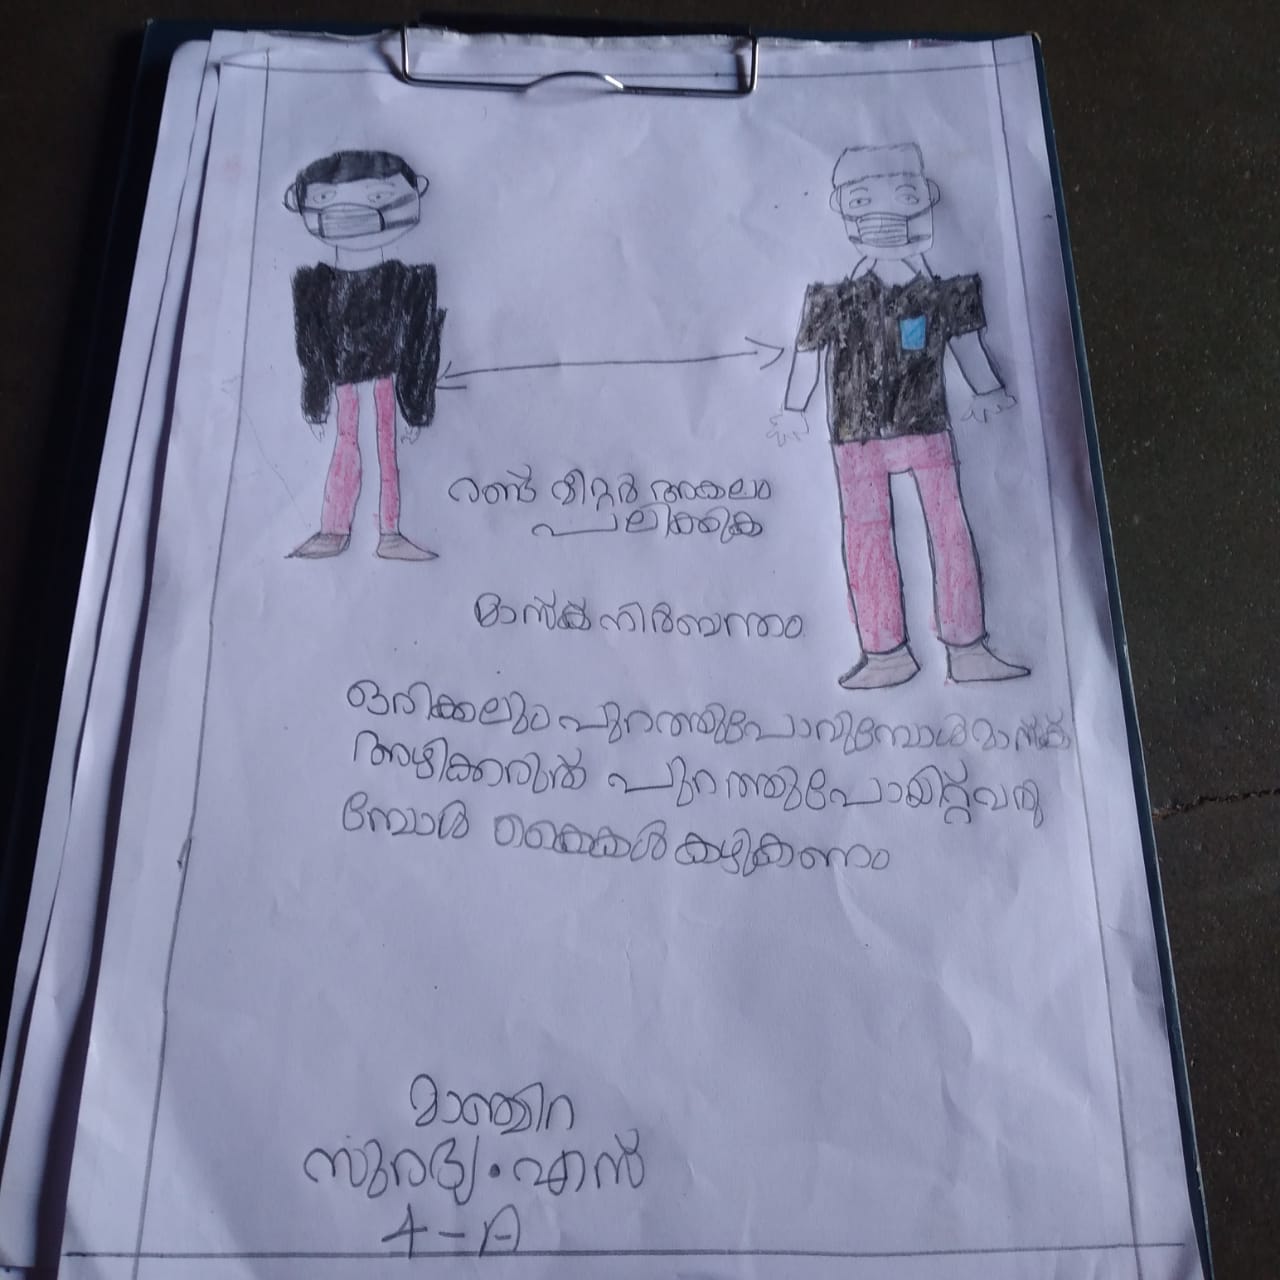 രണ്ട് മീറ്റർ അകലം
പാലിക്കുക
മാസ്ക് നിർബന്ധം
ഒരിക്കലും പുറത്തുപോവുമ്പോൾ മാസ്ക്
അഴിക്കരുത് പുറത്തുപോയിറ്റ് വരു
മ്പോൾ കൈകൾ കഴുകണം
എൻ
4-A